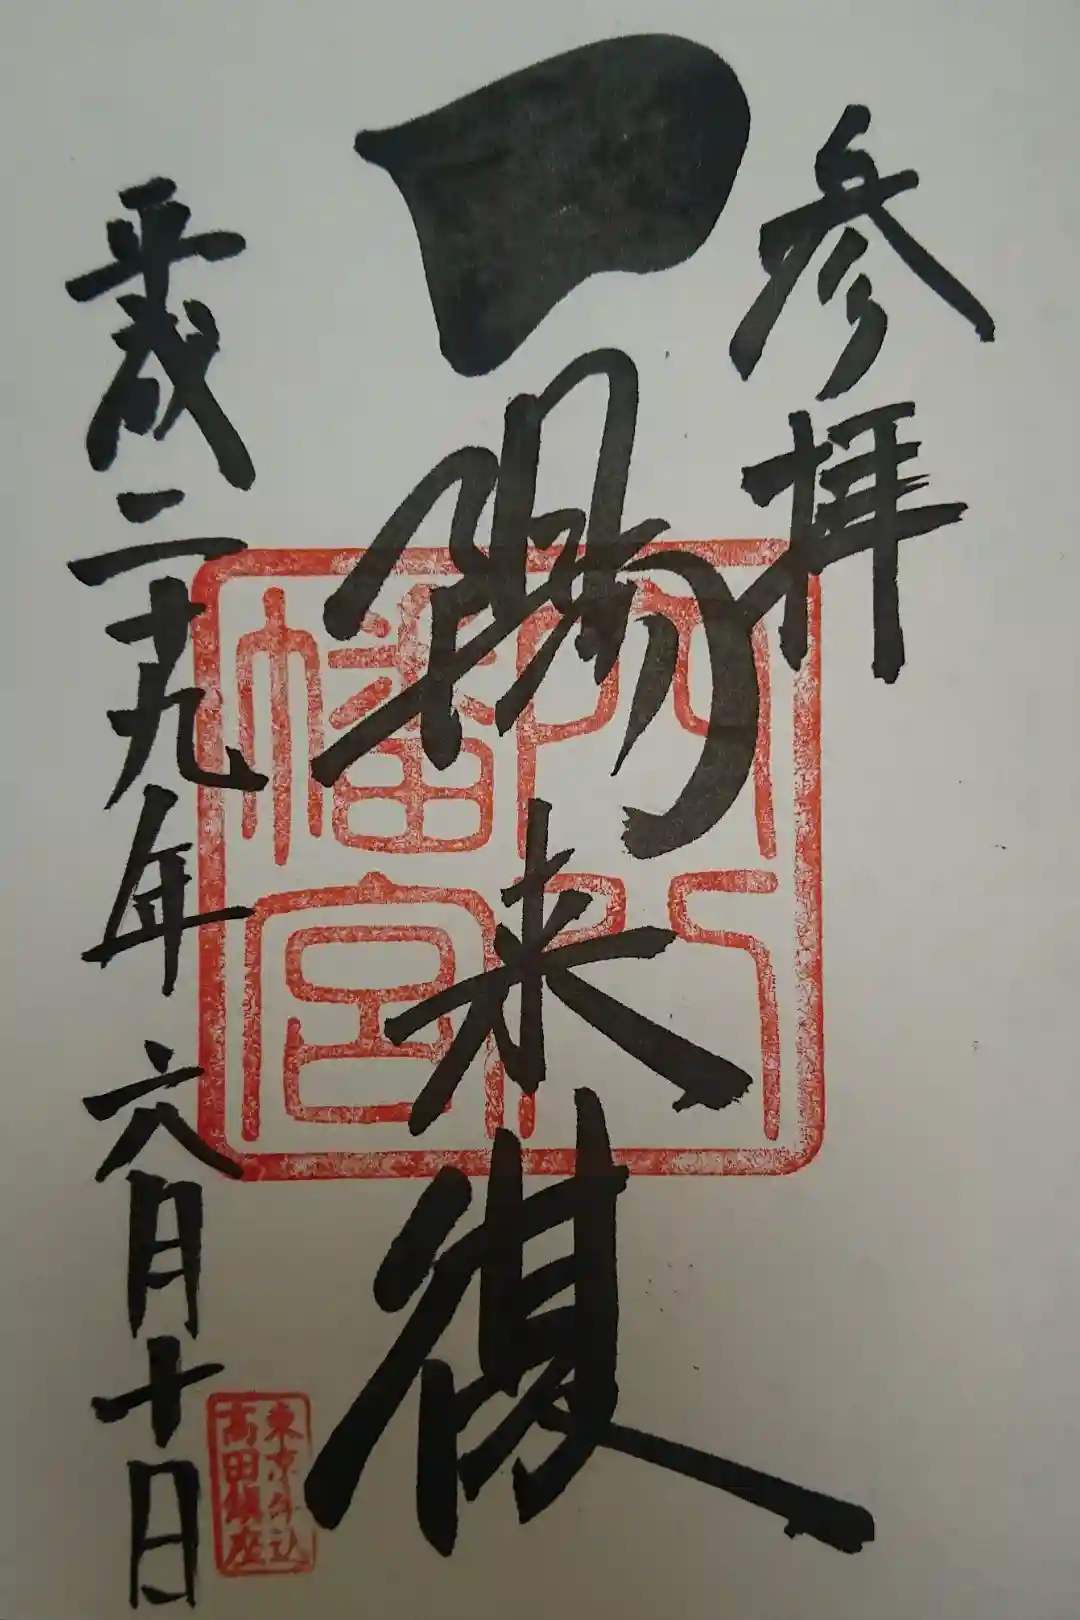 参拝
一陽来復
穴八幡宮
平成二十九年六月十日
東京牛込
高田鎮座